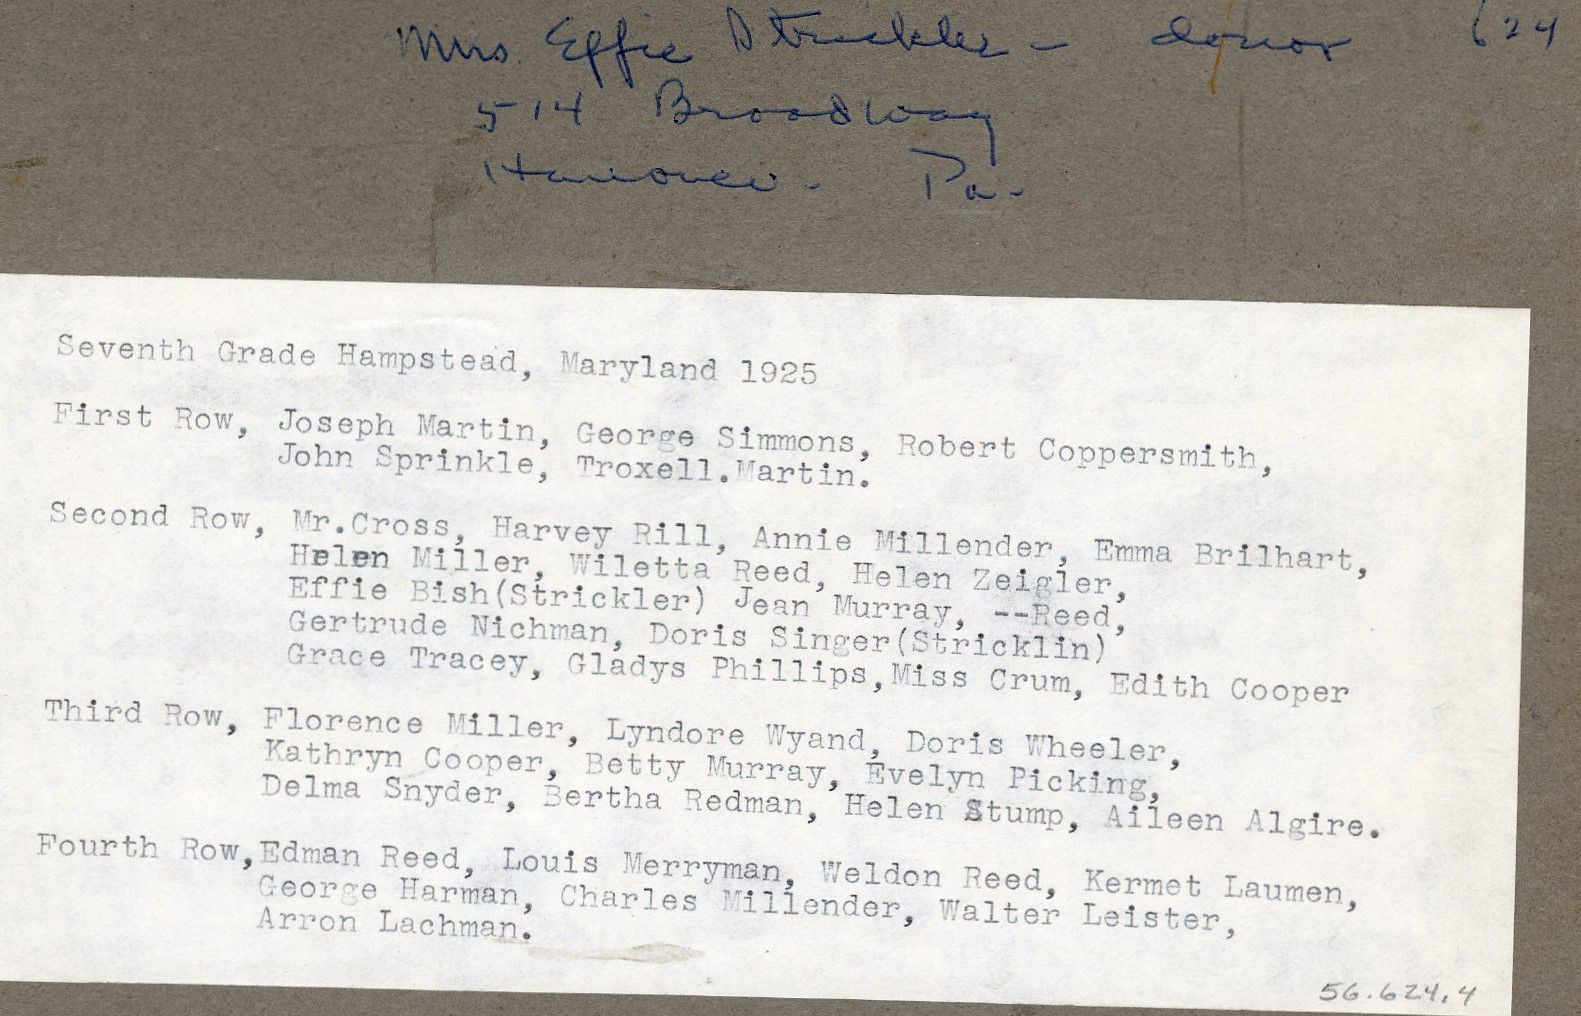 Mrs. Effie Strickler - donor 624
514 Broadway
Hanover - Pa -
Seventh Grade Hampstead, Maryland 1925
First Row, Joseph Martin, George Simmons, Robert Coppersmith,
John Sprinkle, Troxell.Martin.
Second Row, Mr.Cross, Harvey Rill, Annie Millender, Emma Brilhart,
Helen Miller, Wiletta Reed, Helen Zeigler,
Effie Bish(Strickler) Jean Murray, --Reed,
Gertrude Nichman, Doris Singer(Stricklin)
Grace Tracey, Gladys Phillips,Miss Crum, Edith Cooper
Third Row, Florence Miller, Lyndore Wyand, Doris Wheeler,
Kathryn Cooper, Betty Murray, Evelyn Picking,
Delma Snyder, Bertha Redman, Helen Stump, Aileen Algire.
Fourth Row,Edman Reed, Louis Merryman, Weldon Reed, Kermet Laumen,
George Harman, Charles Millender, Walter Leister,
Arron Lachman.
56.624.4